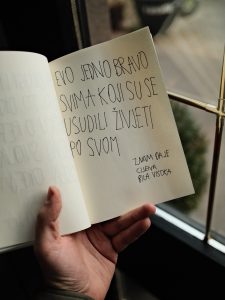 EVO JEDNO BRAVO
SVIMA KOJI SU SE
USUDILI ŽIVJETI
PO SVOM
ZNAM DA JE
CIJENA
BILA VISOKA